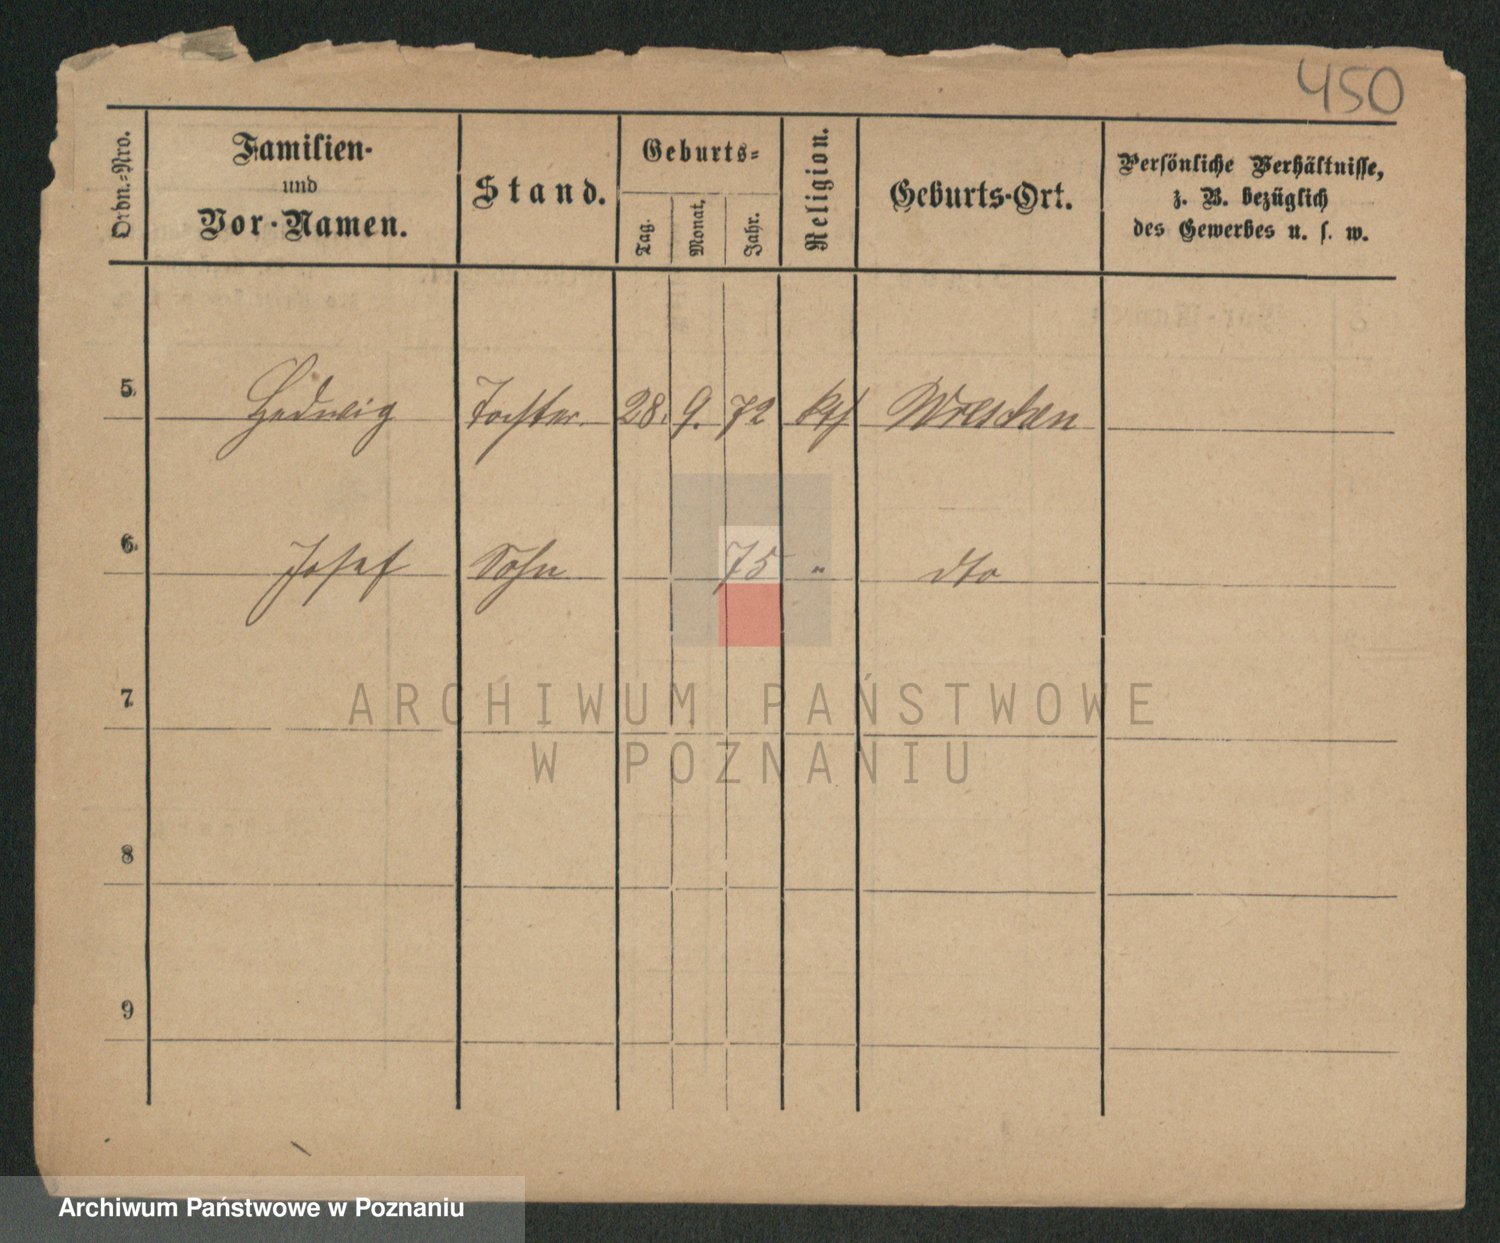 450
Ordn.-Nro.
Familien-
und
Vor-Namen.
Stand.
Geburts-
Tag.
Monat.
Jahr.
Religion.
Geburts-Ort.
Persönliche Verhältnisse,
z. B. bezüglich
des Gewerbes u. s. w.
5. Hedwig Tochter. 28. 9. 72 kth Wreschen
6. Josef Sohn 75 " dto
7.
8
9
ARCHIWUM PAŃSTWOWE
W POZNANIU
Archiwum Państwowe w Poznaniu